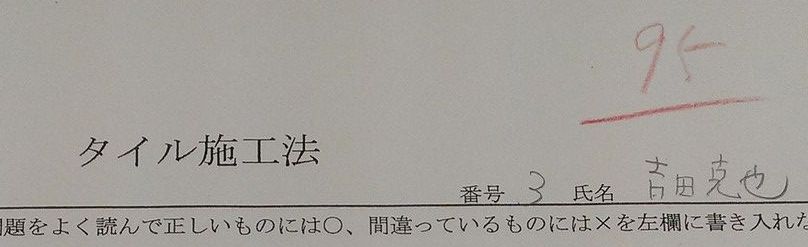 95
タイル施工法
番号 3 氏名 吉田克也
問題をよく読んで正しいものには〇、間違っているものには×を左欄に書き入れた